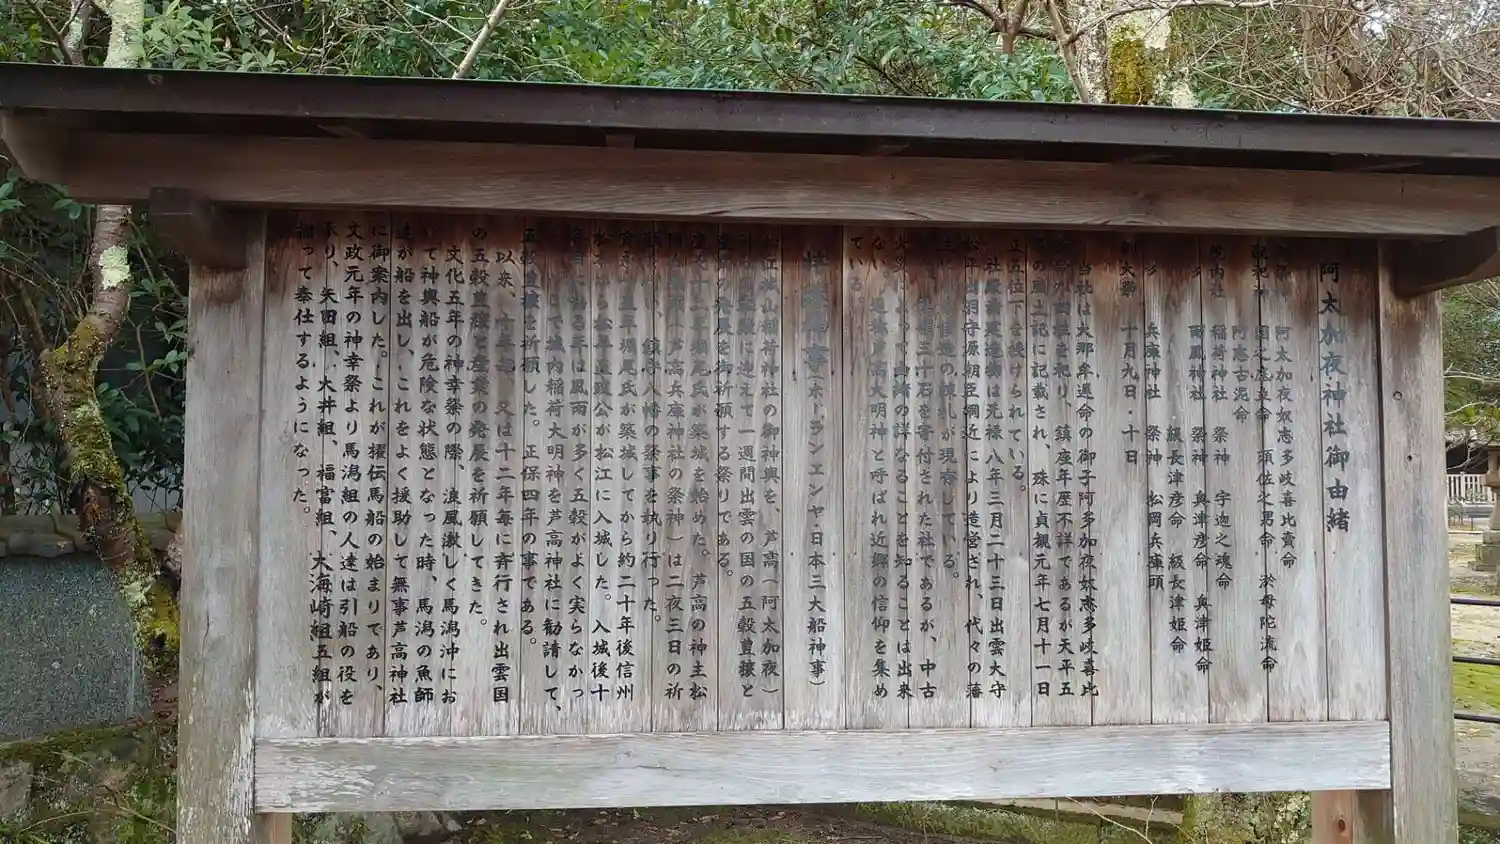 阿太加夜神社御由緒
阿太加夜奴志多岐喜比賣命
国之底立命 須佐之男命 淤母陀流命
阿志古泥命
院内社 稲荷神社 祭神 宇迦之魂命
雨風神社 祭神 奥津彦命 奥津姫命
級長津彦命 級長津姫命
兵庫神社 祭神 松岡兵庫頭
例大祭 十月九日・十日
当社は大那牟遅命の御子阿多加夜奴志多岐喜比
外四柱を祀り、鎮座年歴不詳であるが天平五
の風土記に記載され、殊に貞観元年七月十一日
正五位下を授けられている。
社殿 建造物は元禄八年三月二十三日出雲大守
松平出羽守源朝臣綱近により造営され、代々の藩
造の棟札が現存している。
三十石を寄付された社であるが、中古
火災によって由緒の詳なることを知ることは出来
ない 近郷芦高大明神と呼ばれ近郷の信仰を集め
ている。
特殊神事(ホーランエンヤ・日本三大船神事)
松江城山稲荷神社の御神輿を、芦高(阿太加夜)
神社 に迎えて一週間出雲の国の五穀豊穣と
産業の発展を御祈願する祭りである。
慶長十二年堀尾氏が築城を始めた。芦高の神主松
岡兵庫頭(芦高兵庫神社の祭神)は二夜三日の祈
、鎮守八幡の祭事を執り行った。
寛永十五年堀尾氏が築城してから約二十年後信州
松本から松平直政公が松江に入城した。入城後十
年目に当る年は風雨が多く五穀がよく実らなかっ
て城内稲荷大明神を芦高神社に勧請して、
五穀豊穣を祈願した。正保四年の事である。
以来、十年毎、又は十二年毎に斉行され出雲国
の五穀豊穣と産業の発展を祈願してきた。
文化五年の神幸祭の際、浪風激しく馬潟沖にお
いて神輿船が危険な状態となった時、馬潟の魚師
達が船を出し、これをよく援助して無事芦高神社
に御案内した。これが櫂伝馬船の始まりであり、
文政元年の神幸祭より馬潟組の人達は引船の役を
承り、矢田組、大井組、福富組、大海崎組五組が
揃って奉仕するようになった。